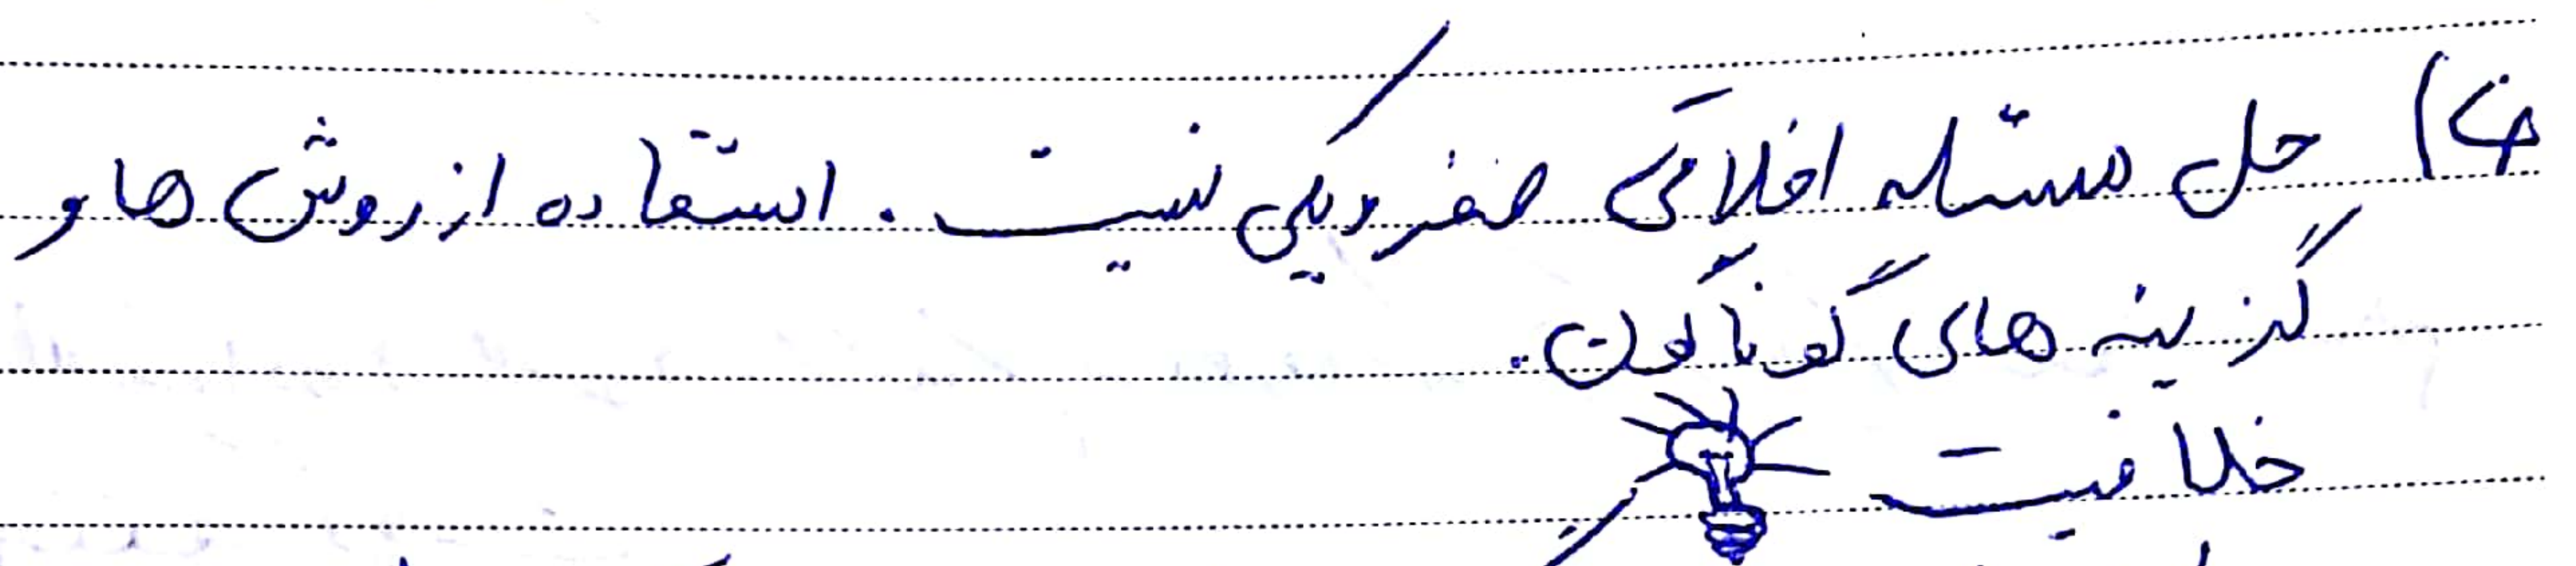 ج) حل مسئله اخلاقی صفر و یکی نیست. استفاده از روش ها و
گزینه های گوناگون.
خلاقیت